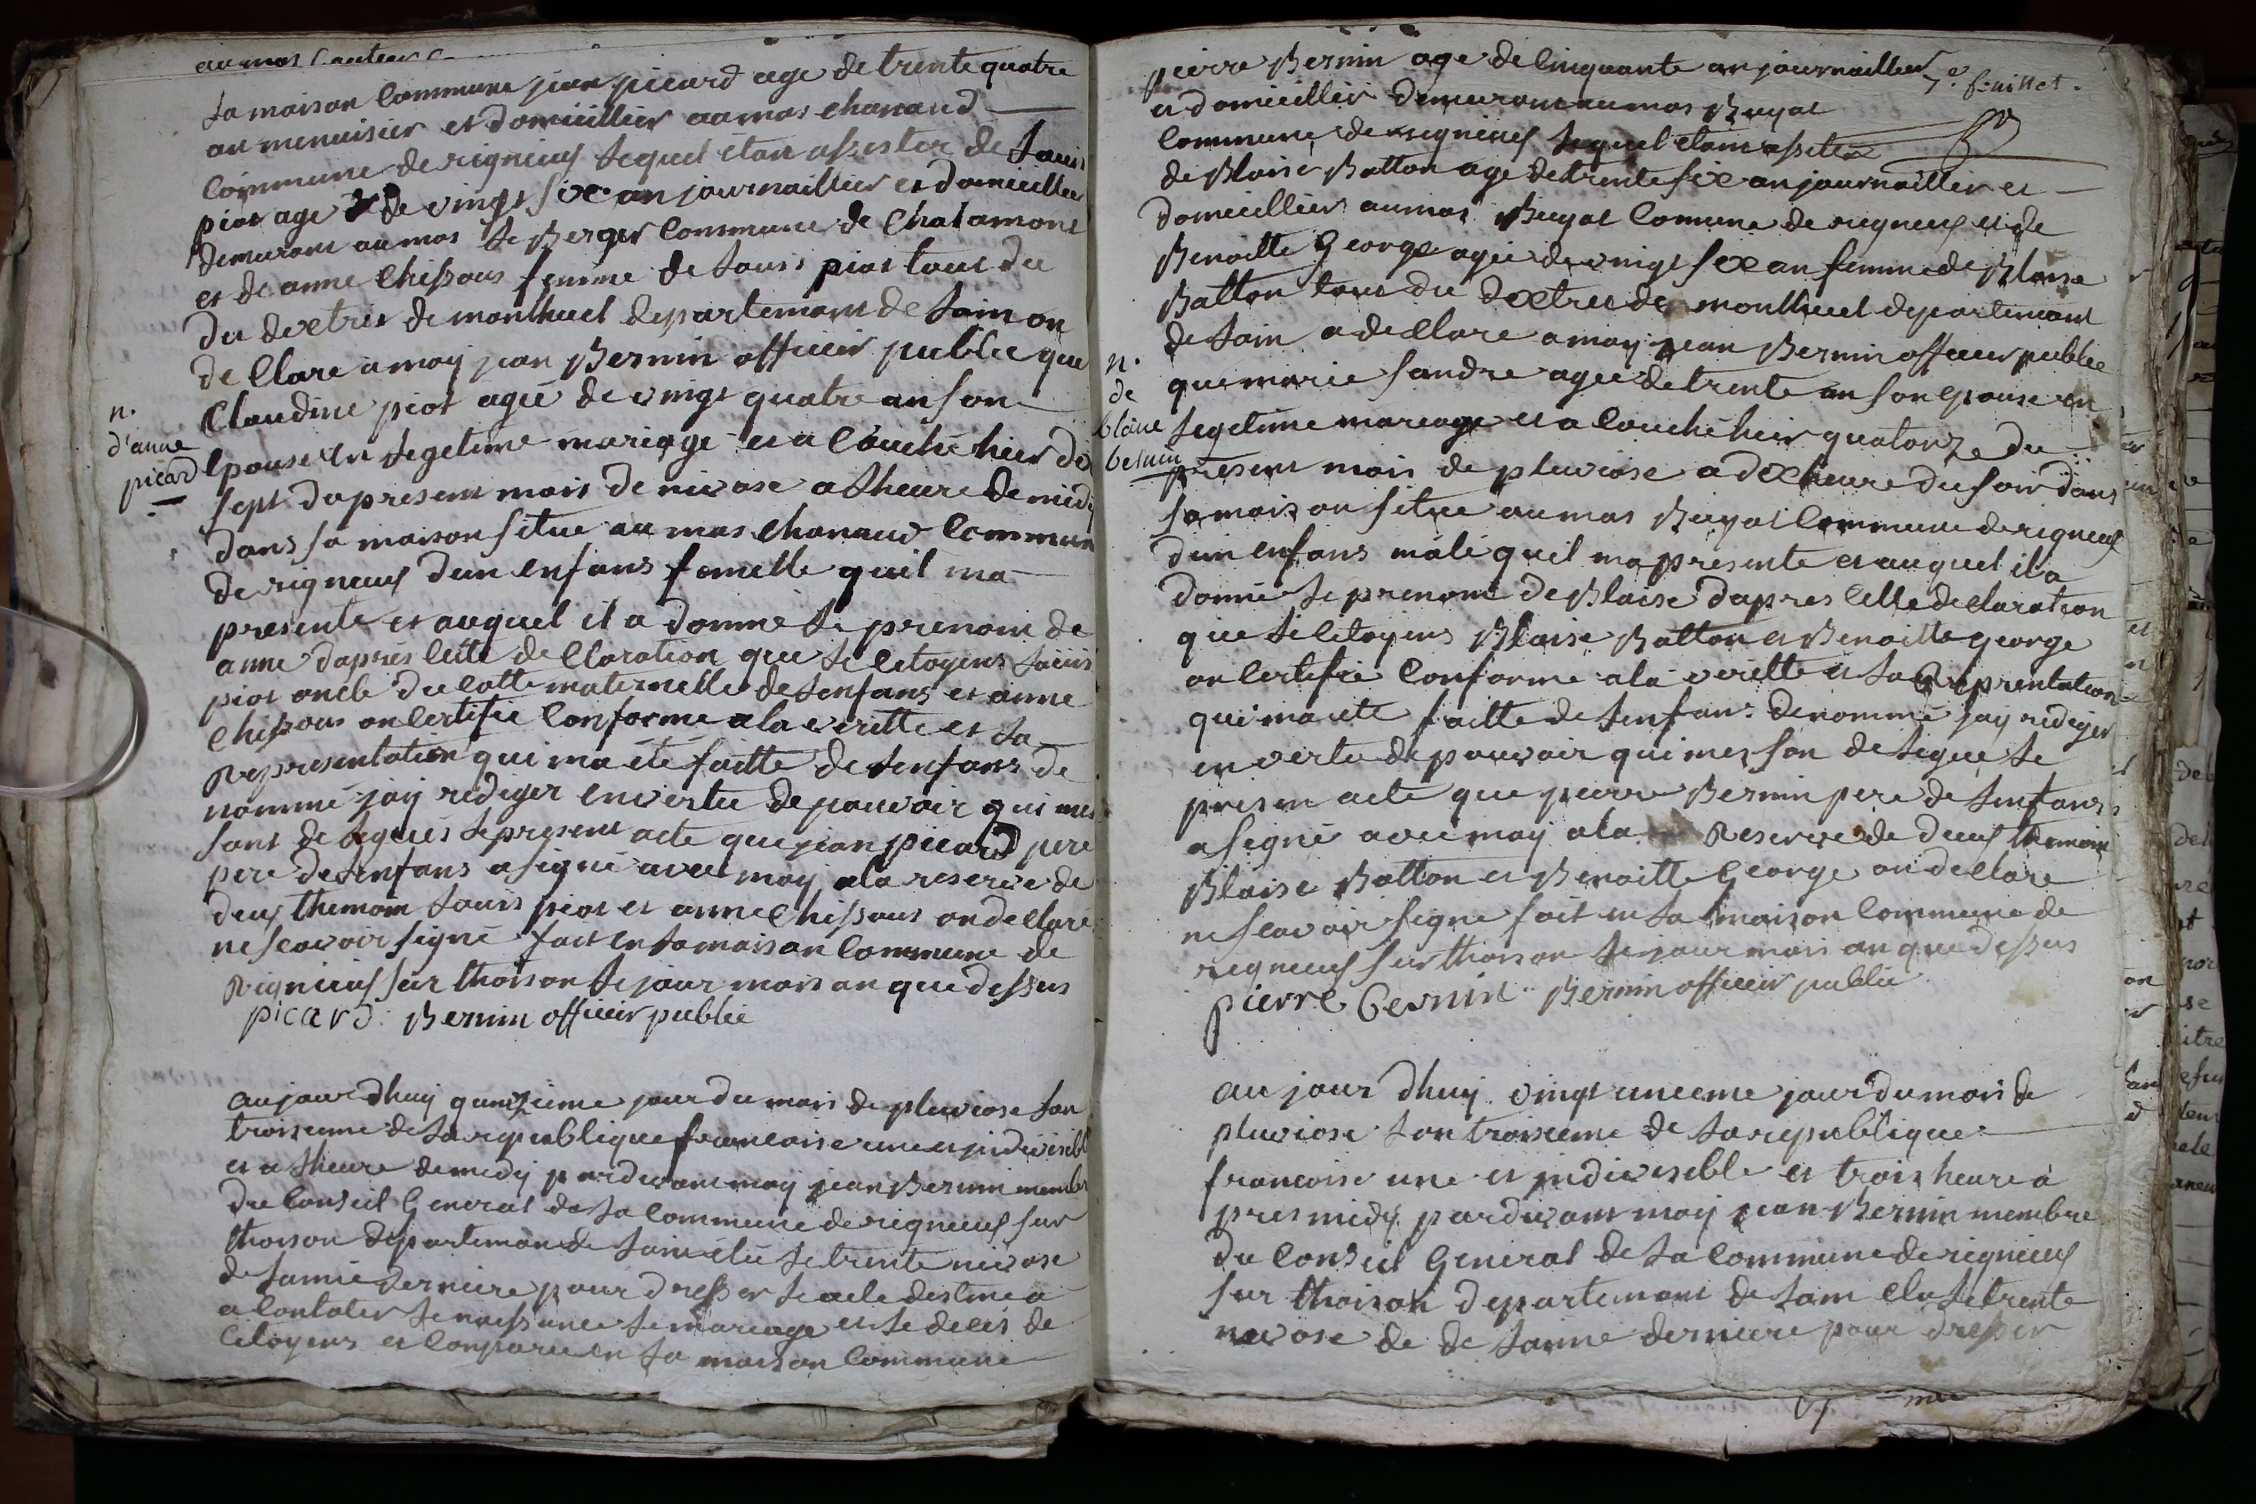 la maison commune jean picard age de trente quatre
an menuisier et domicillier au mas chanaud
commune de rigneus lequel étan assister de Louis
piot age de vingt six an journaillier et domicillier
demurant au mas le Berger commune de Chalamont
et de anne Chissous femme de Louis piot tout du
du dixtrit de montluel departemant de Lain on
de Clare a moy jean Bernin officier public que
n.
d'anne
picard
Claudine piot agée de vingt quatre an son
epouse en legetime mariage et a Couché hier dix
sept du present mois de nivose a lheure de midy
dans sa maison situe au mas chanaud Commune
de rigneus dun enfans femelle quil ma
presente et auquel il a donné le prenom de
anne dapres cette de Claration que le Citoyens Louis
piot oncle du Cotte maternelle de lenfans et anne
Chissous on Certifie Conforme a la veritte et la
Representation qui ma été faitte de lenfans de
nommé jay rediger en vertu de pouvoir qui me
sont de legués le present acte que jean picard pere
pere de lenfans a signé avec moy a la reserve de
deus themoin Louis piot et anne Chissous on declaré
ne scavoir signé fait en la maison Commune de
Rigneus sur thoison le jour mois an que dessus
picard: Bernin officier public
aujourdhuy quinzieme jour du mois de pluviose lan
troisieme de la republique francoise une et jndivisible
et a lheure de midy pardevant moy jean Bernin membre
du Conseil General de la Commune de rigneus sur
thoison departeman de Lain élu le trente nivose
de lannée derniere pour dresser le acte destiné a
a Contater le naissance le mariage et le decés de
Citoyens et Conparu en la maison Commune
pierre Bernin age de Cinquante an journaillier
7.e feuillet.
et domicillier demurant au mas Buyat
Commune de rigneus lequel étam assiter
de Blaise Batton age de trente six an journaillier et
domicillier au mas Buyat Comune de rigneus et de
Benoitte George agée de vingt six an femme de Blaise
Batton tout du dixtrit de montluel departemant
de Lain a declare a moy jean Bernin officier public
n.
de
blaise
bernin
que marie Sandre agée de trente an son epouse en
legetime mariage et a Couché hier quatorze du
present mois de pluviose a dix heure du soir dans
sa maison situe au mas Buyat Commune de rigneus
dun enfans male quil ma presente et auquel il a
donné le prenom de Blaise dapres Cette declaration
que le Citoyens Blaise Batton et Benoitte George
on Certifie Conforme a la veritte et la Representation
qui ma ete faitte de lenfans denommé jay rediger
en vertu de pouvoir qui me son de legue le
present acte que pierre Bernin pere de lenfans
a signé avec moy a la Reserve de deus themoin
Blaise Batton et Benoitte George on declare
ne scavoir signe fait en la maison Commune de
rigneus sur thoison le jour mois an que dessus
pierre Bernin Bernin officier public
au jour dhuy vingt unieme jour du mois de
pluviose lan troisieme de la republique
francoise une et jndivisible et trois heure a
pres midy pardevant moy jean Bernin membre
du Conseil General de la Commune de rigneus
sur thoison departemant de Lain elu le trente
nivose de de lannée derniere pour dresser